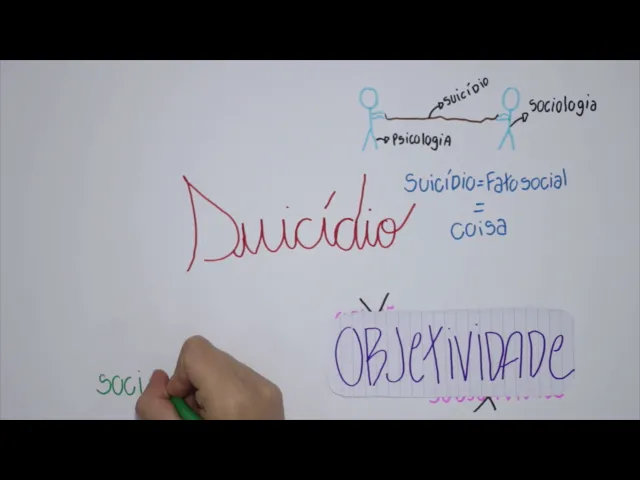 suicídio
sociologia
PSICOLOGIA
Suicídio=Fato social
=
coisa
Suicídio
OBJETIVIDADE
soci